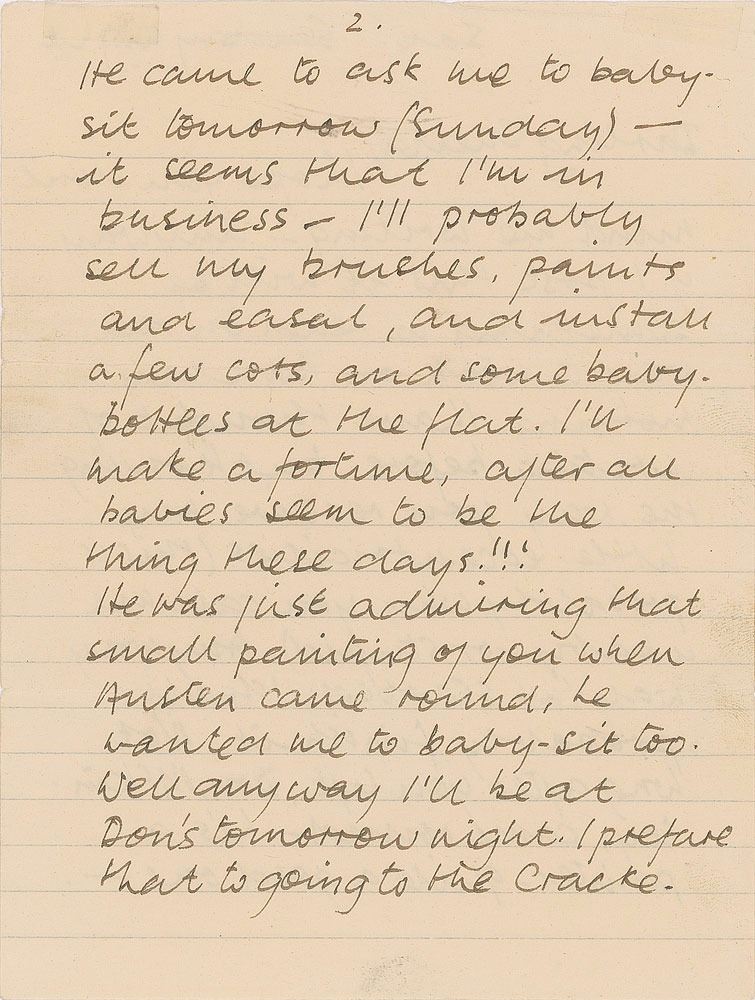 2.
He came to ask me to baby-
sit tomorrow (Sunday) —
it seems that I'm in
business — I'll probably
sell my brushes, paints
and easal, and install
a few cots, and some baby-
bottles at the flat. I'll
make a fortune, after all
babies seem to be the
thing these days!!!
He was just admiring that
small painting of you when
Austen came round, he
wanted me to baby-sit too.
Well anyway I'll be at
Don's tomorrow night. I prefare
that to going to the Cracke.